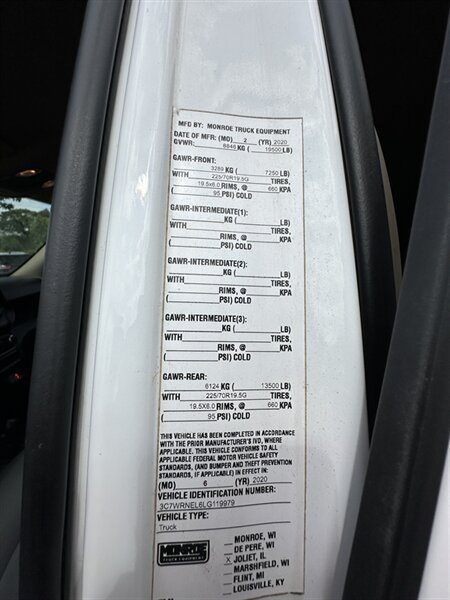 MFG BY: MONROE TRUCK EQUIPMENT
DATE OF MFR: (MO) 2 (YR) 2020
GVWR: 8846 KG ( 19500 LB)
GAWR-FRONT:
3289 KG ( 7250 LB)
WITH 225/70R19.5G TIRES,
19.5x6.0 RIMS, @ 660 KPA
( 95 PSI) COLD
GAWR-INTERMEDIATE(1):
KG ( LB)
WITH TIRES,
RIMS, @ KPA
( PSI) COLD
GAWR-INTERMEDIATE(2):
KG ( LB)
WITH TIRES,
RIMS, @ KPA
( PSI) COLD
GAWR-INTERMEDIATE(3):
KG ( LB)
WITH TIRES,
RIMS, @ KPA
( PSI) COLD
GAWR-REAR:
6124 KG ( 13500 LB)
WITH 225/70R19.5G TIRES,
19.5X6.0 RIMS, @ 660 KPA
( 95 PSI) COLD
THIS VEHICLE HAS BEEN COMPLETED IN ACCORDANCE
WITH THE PRIOR MANUFACTURER'S IVD, WHERE
APPLICABLE. THIS VEHICLE CONFORMS TO ALL
APPLICABLE FEDERAL MOTOR VEHICLE SAFETY
STANDARDS, (AND BUMPER AND THEFT PREVENTION
STANDARDS, IF APPLICABLE) IN EFFECT IN:
(MO) 6 (YR) 2020
VEHICLE IDENTIFICATION NUMBER:
3C7WRNEL6LG119979
VEHICLE TYPE:
Truck
MONROE
TRUCK EQUIPMENT
MONROE, WI
DE PERE, WI
X JOLIET, IL
MARSHFIELD, WI
FLINT, MI
LOUISVILLE, KY